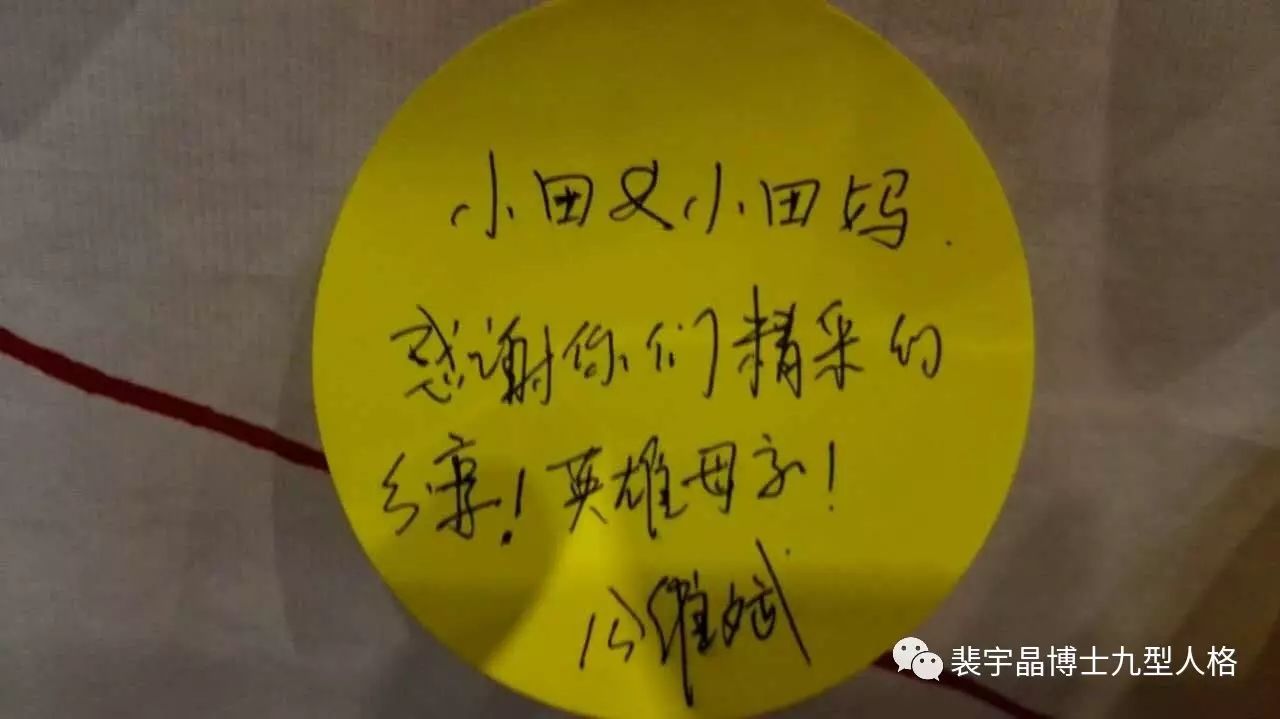 小田又小田妈.
感谢你们精采的
分享!英雄母子!
公维斌
裴宇晶博士九型人格